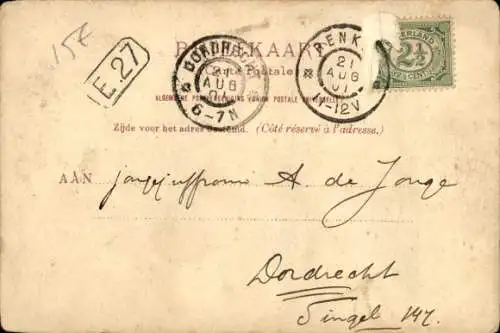 15€
E.27
BRIEFKAART
(Carte Postale)
ALGEMEENE POSTVEREENIGING (UNION POSTALE UNIVERSELLE)
DORDRECHT
21
AUG
01
6-7N
RENK
21
AUG
01
11-12V
NEDERLAND
2½
CENT
Zijde voor het adres bestemd. (Côté réservé à l'adresse.)
AAN Jongejuffrouw A de Jonge
Dordrecht
Singel 147.